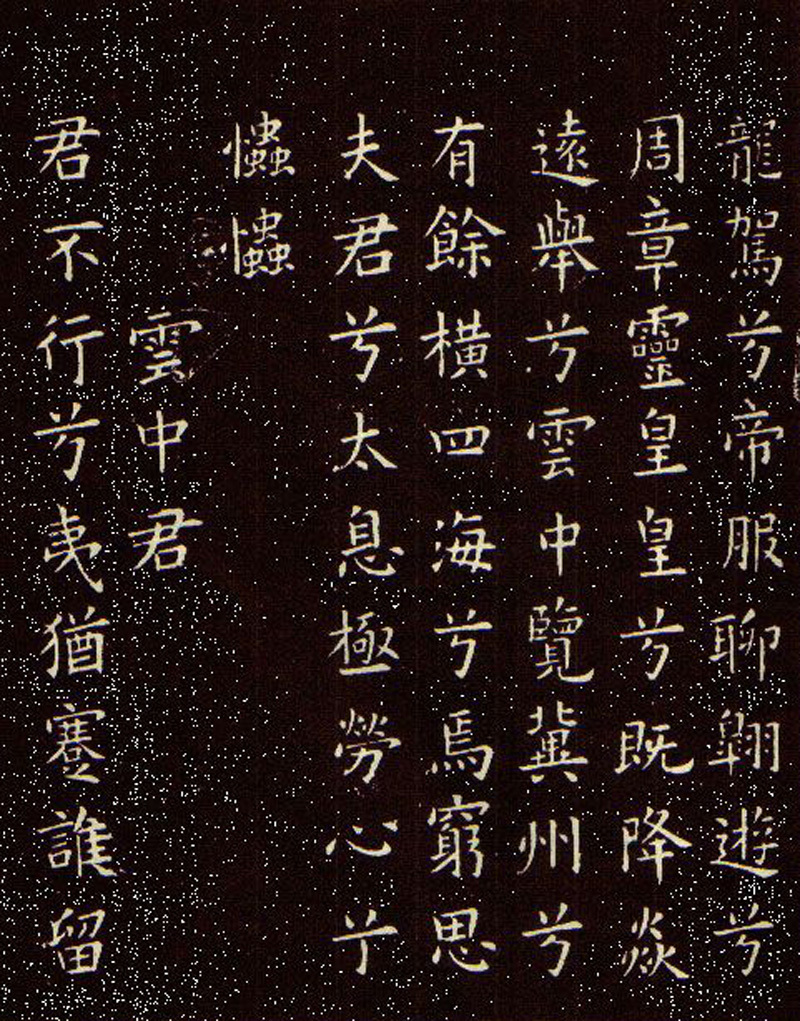 龍駕兮帝服聊翱遊兮
周章靈皇皇兮既降焱
遠舉兮雲中覽冀州兮
有餘橫四海兮焉窮思
夫君兮太息極勞心兮
忡忡
雲中君
君不行兮夷猶蹇誰留